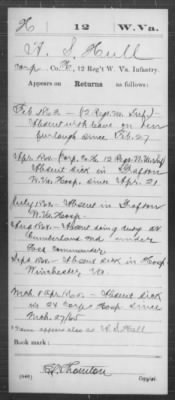 H 12 W.Va.
W. S. Hull
Corp., Co. K, 12 Reg't W. Va. Infantry.
Appears on Returns as follows:
Feb 186 - (12 Regt. Inf)-
Absent with leave on
furlough since Feb. 27
Apr. 186 Corp. Co. K 12 Regt. W. Va. Inf
Absent sick in Grafton
W. Va. Hosp. since Apr. 21
July/186 - Absent in Grafton
W. Va. Hosp.
Aug 186 - Absent doing duty at
Cumberland Md under
Post commander
Sept 186 - Absent sick in Hosp
Winchester Va.
Mch & Apr/186 - Absent sick
in 24 Corps Hosp since
Mch. 27/65
Name appears also as W. S. Hall
Book mark:
Thornton
(546) Copyist.